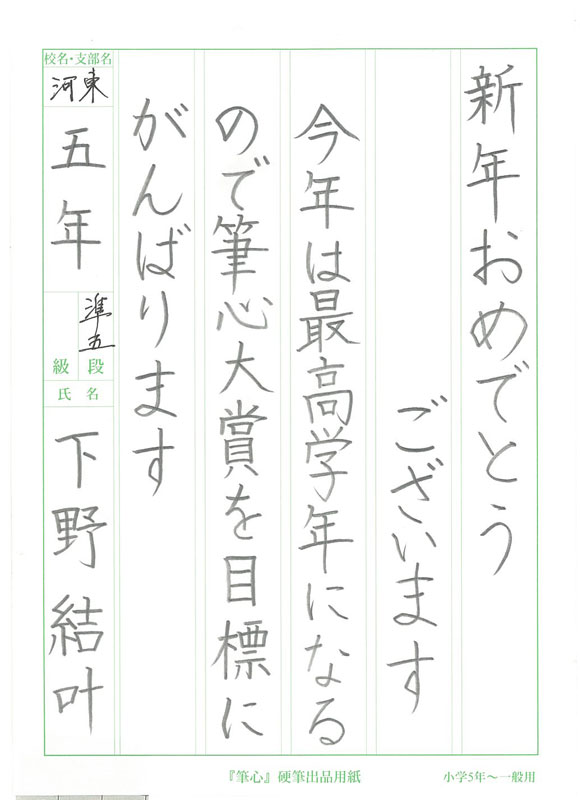 新年おめでとう
ございます
今年は最高学年になる
ので筆心大賞を目標に
がんばります
校名・支部名
河東
五年
準五
級 段
氏 名
下野結叶
『筆心』硬筆出品用紙
小学5年〜一般用